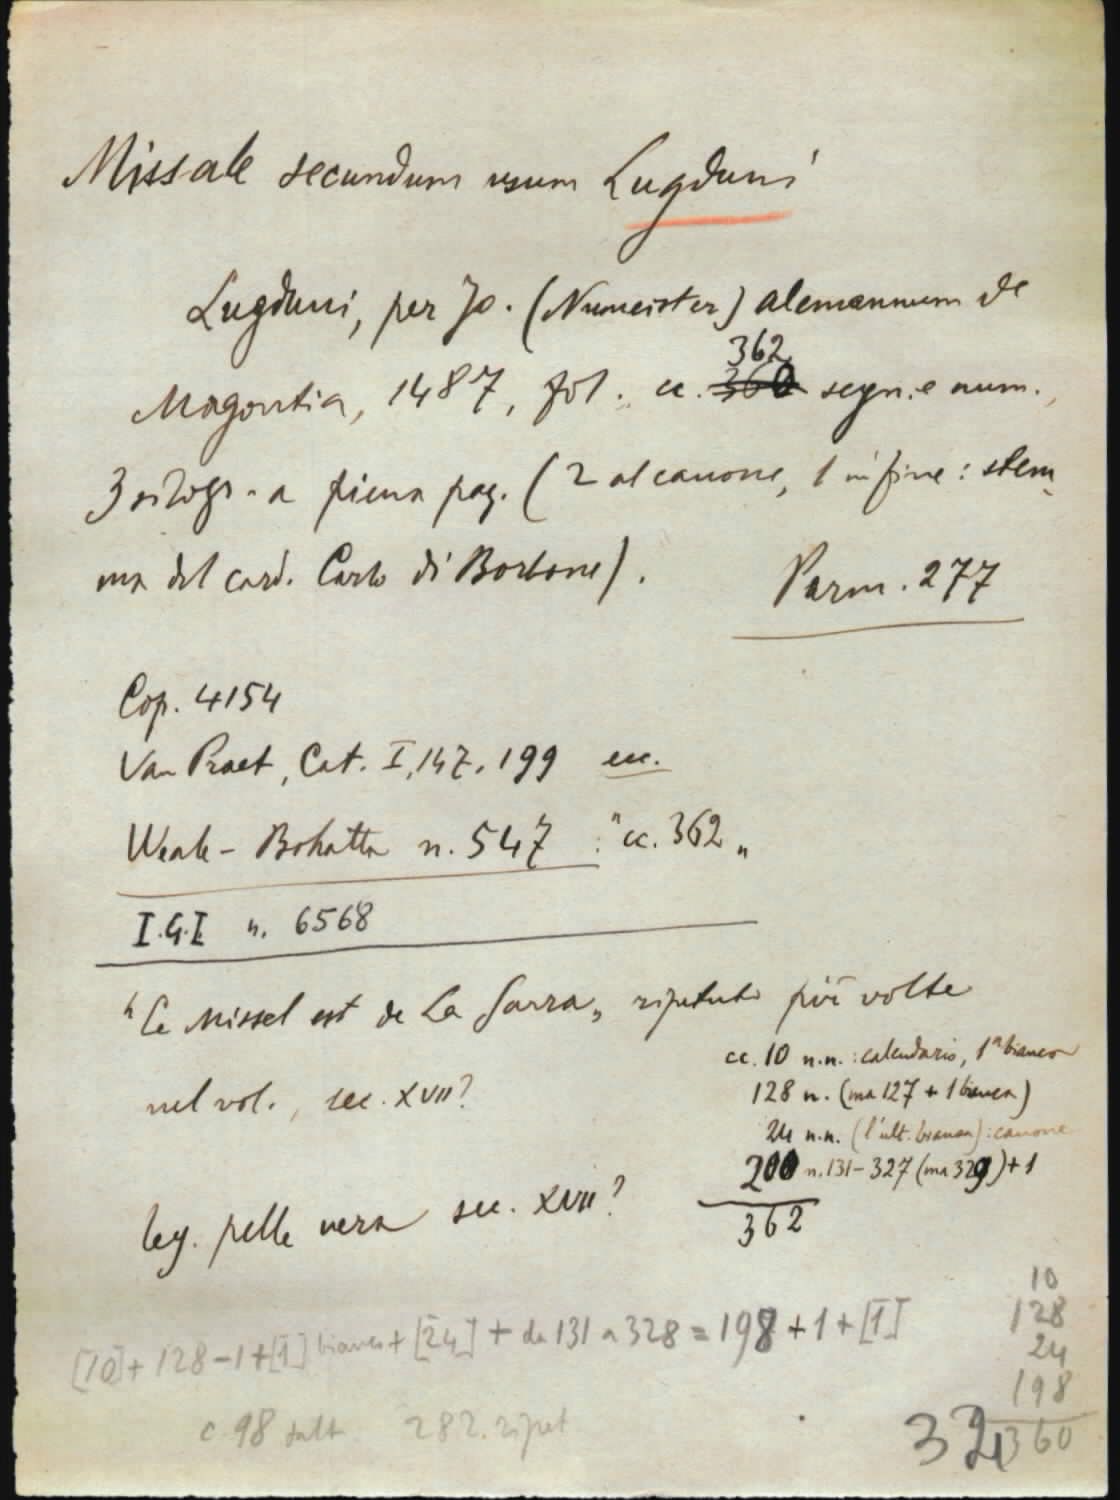 Missale secundum usum Lugduni
Lugduni, per Jo. (Numeister) alemannum de
362
Magontia, 1487, fol. cc. 360 segn. e num.
3 silogr. a piena pag. (2 al canone, 1 in fine: stem
ma del card. Carlo di Borbone).
Parm. 277
Cop. 4154
Van Praet, Cat. I, 147, 199 ecc.
Weale-Bohatta n. 547 : "cc. 362"
I.G.I. n. 6568
"Ce Missel est de La Sarra" ripetuto più volte
nel vol., sec. XVII?
cc. 10 n.n.: calendario, 1ª bianca
128 n. (ma 127 + 1 bianca)
24 n.n. (l'ult. bianca): canone
200 n. 131-327 (ma 329) + 1
362
leg. pelle nera sec. XVII?
[10] + 128-1 + [1] bianca + [24] + da 131 a 328 = 198 + 1 + [1]
10
128
24
198
360
c. 98 salt. 282. ripet
32